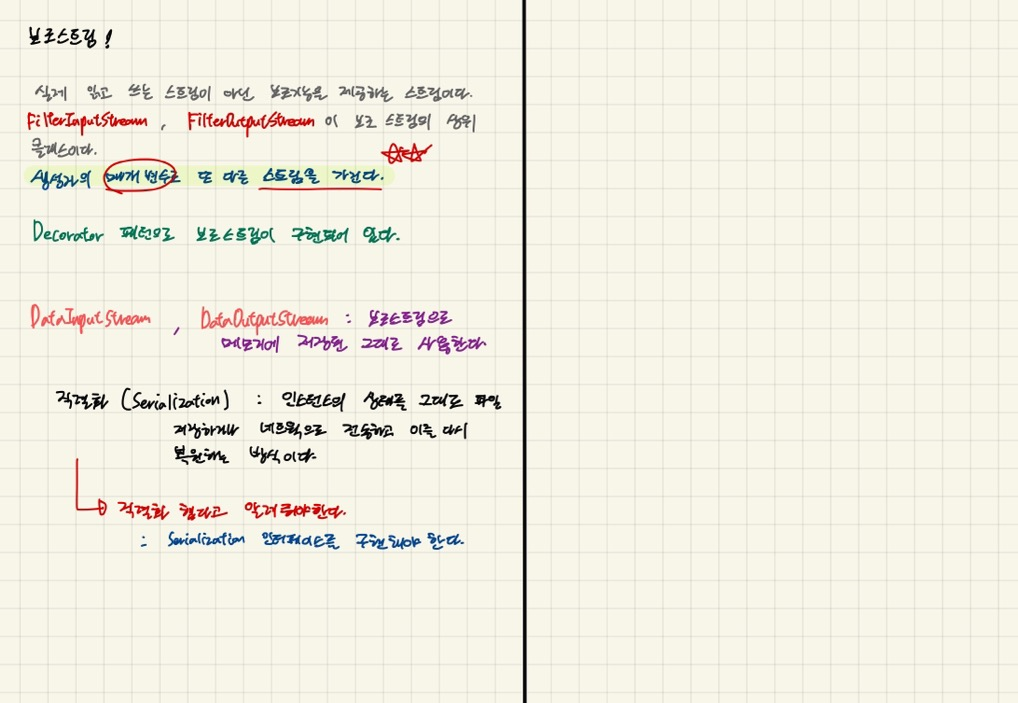 보조스트림!
실제 읽고 쓰는 스트림이 아닌 보조기능을 제공하는 스트림이다.
FilterInputStream, FilterOutputStream이 보조 스트림의 상위
클래스이다.
생성자의 매개 변수로 또 다른 스트림을 가진다.
Decorator 패턴으로 보조스트림이 구현되어 있다.
DataInputStream, DataOutputStream : 보조스트림으로
메모리에 저장된 그대로 사용한다
직렬화 (Serialization) : 인스턴스의 상태를 그대로 파일
저장하거나 네트웍으로 전송하고 이를 다시
복원하는 방식이다.
직렬화 한다고 알려줘야한다.
: Serialization 인터페이스를 구현해야 한다.